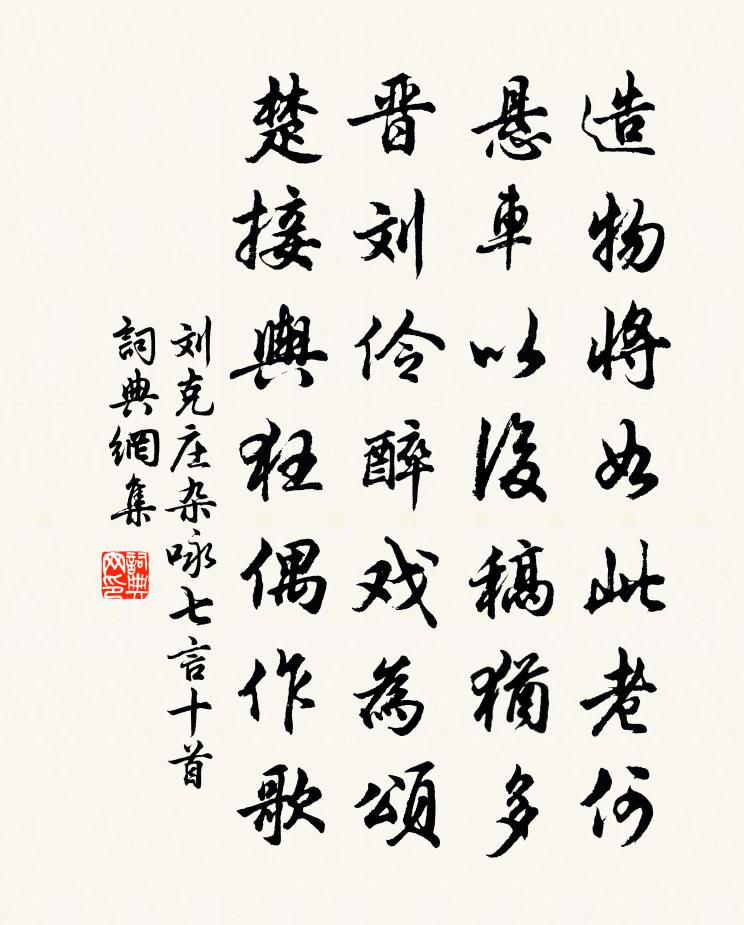 造物将如此老何
悬車以後稿猶多
晋刘伶醉戏為頌
楚接輿狂偶作歌
刘克庄杂咏七言十首
詞典網集
詞典网印